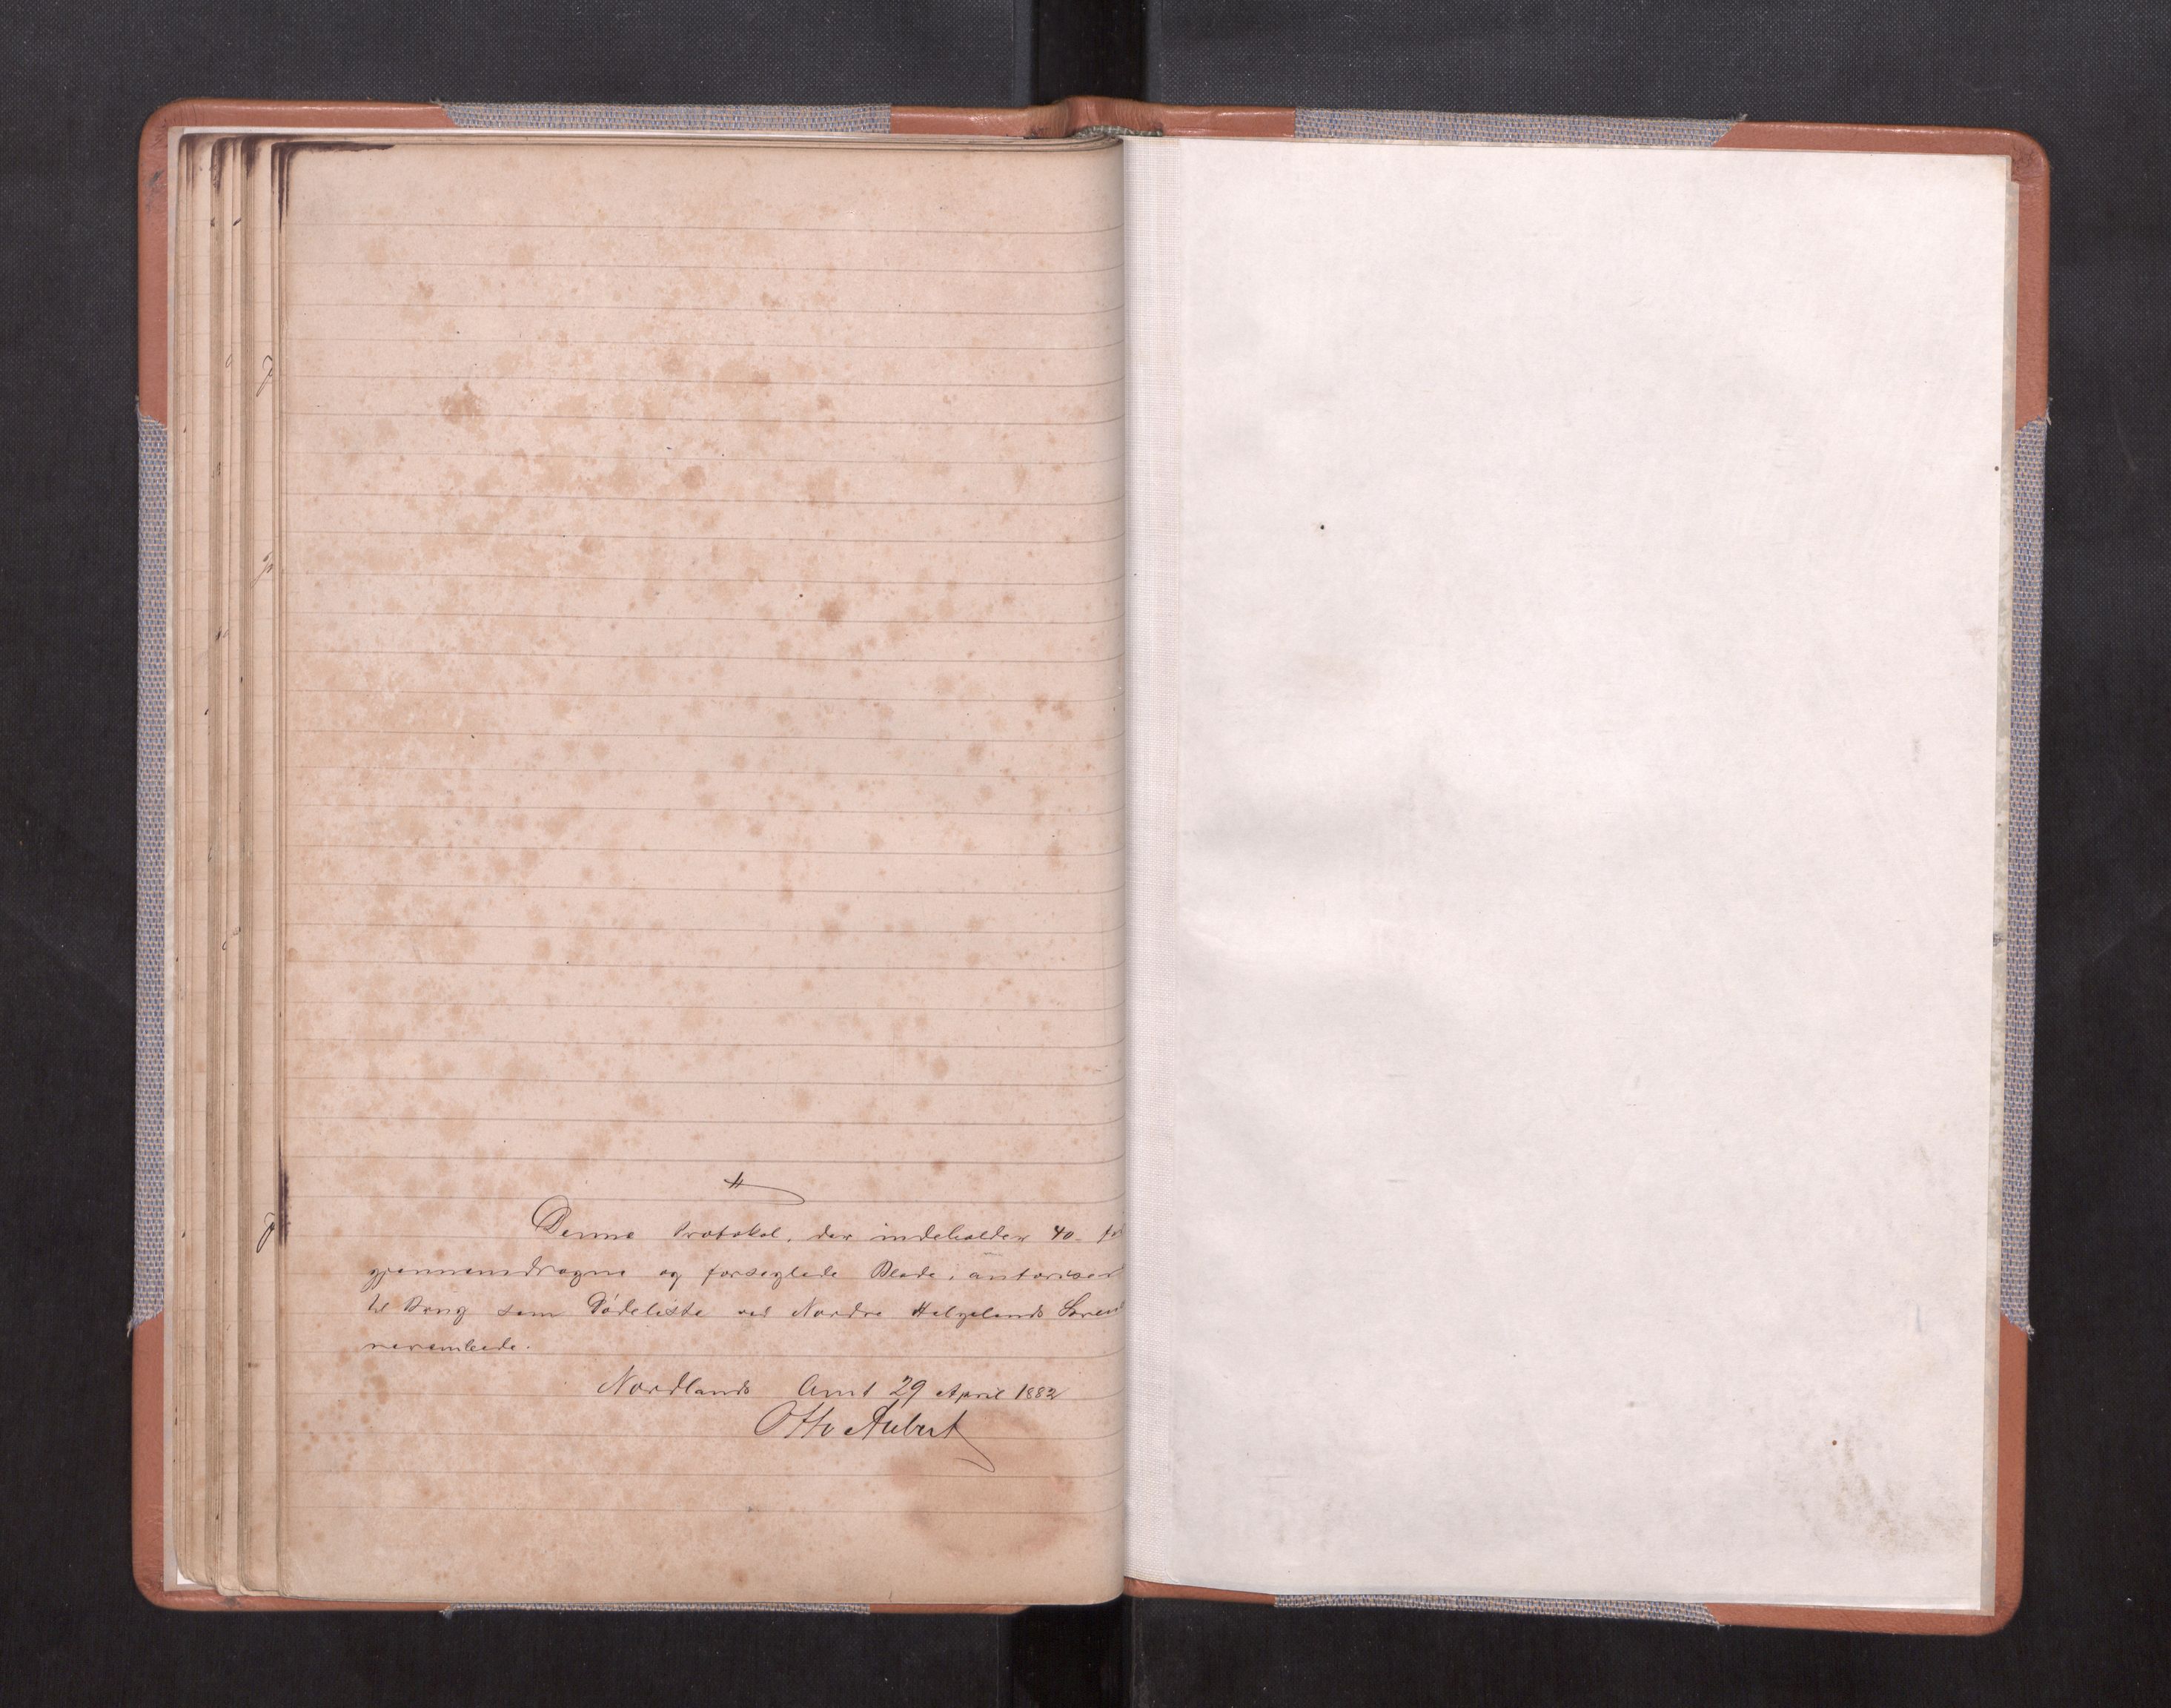 Denne Protokol, der indeholder 40
gjennemdragne og forseglede Blade, autoriser
til Brug som Dødeliste ved Nordre Helgelands Soren
riverembede.
Nordlands Amt 29 April 1882
Otto Aubert